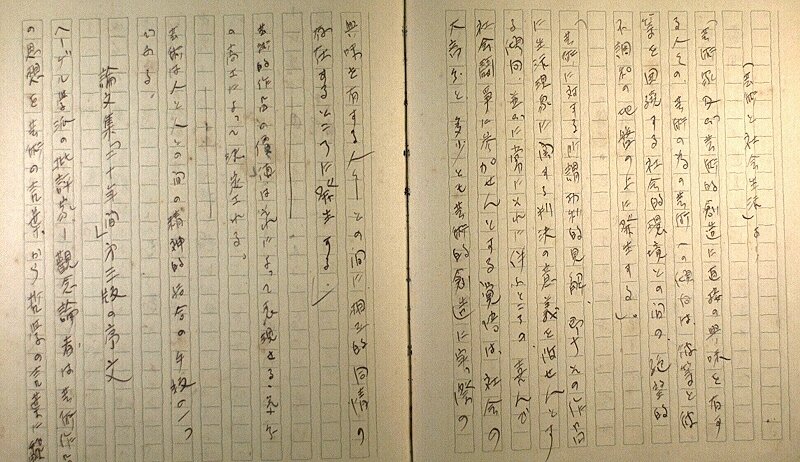 (芸術と社会生活)より
「芸術家及び芸術的創造に直接の興味を有す
る人々の芸術の為の芸術への傾向は、彼等と彼
等を囲繞する社会的環境との間の絶望的
不調和の地盤の上に発生する。」
「芸術に対する所謂功利的見解、即ちその作品
に生活現象に関する判決の意義を附せんとす
る傾向、並びに常にそれに伴ふところの、喜んで
社会闘争に参加せんとする覚悟は、社会の
大部分と、多少とも芸術的創造に実際の
興味を有する人々との間に相互的同情の
存在するところに発生する。」
芸術的作品の価値はそれによつて表現せる
の高上によつて決定される。
芸術は人と人との間の精神的結合の手段の一つ
である。
論文集「二十年間」第三版の序文
ヘーゲル学派の批評家―観念論者は芸術作品
の思想を芸術の言葉から哲学の言葉に翻